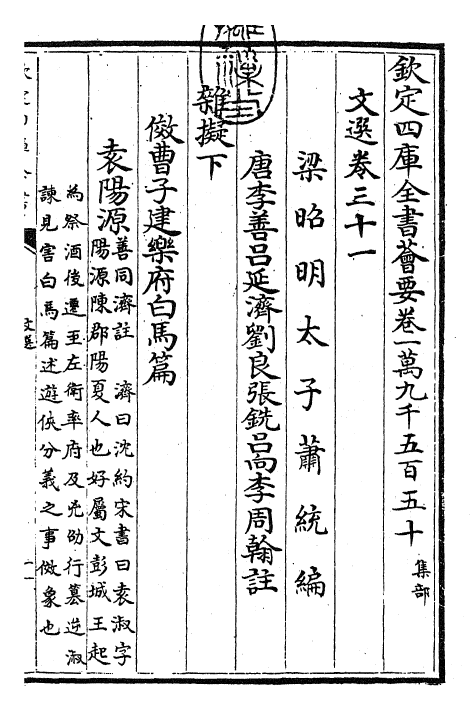 欽定四庫全書薈要卷一萬九千五百五十 集部
文選卷三十一
梁昭明太子蕭統編
唐李善呂延濟劉良張銑呂向李周翰註
雜擬下
傚曹子建樂府白馬篇
袁陽源
善同濟註 濟曰沈約宋書曰袁淑字
陽源陳郡陽夏人也好屬文彭城王起
為祭酒後遷至左衛率府及兇劭行篡逆淑
諫見害白馬篇述遊俠分義之事傚象也
文選